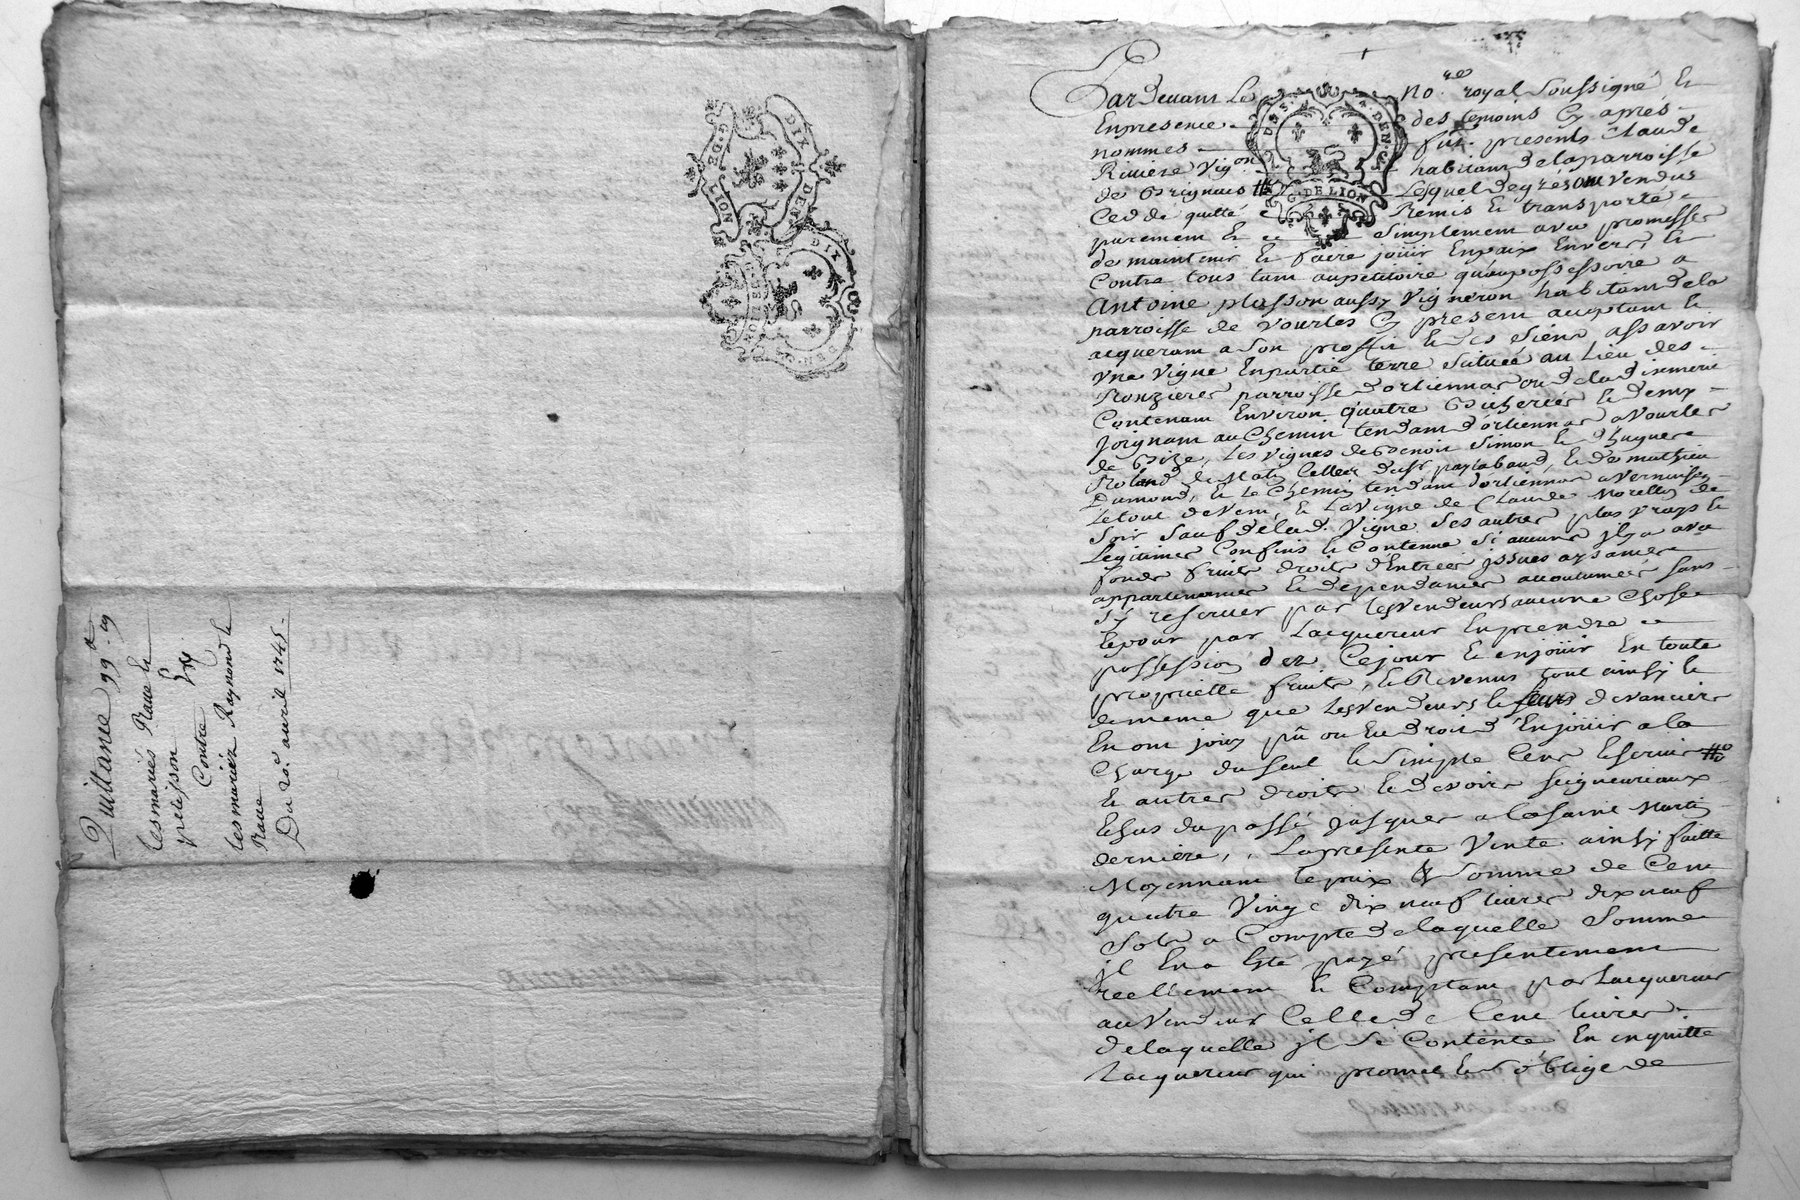 Quittance 99# 19s
les mariés Raue et
pelisson
Contre
les mariéz Raynond et
Raue
Du 20e. avril 1745.
G. DE LION
DIX DEN.
DIX DEN.
G. DE LION
Pardevant Le no.re royal Soussigné Et
En presence des temoins Cy aprés
nommés fut presents Claude
Riviere Vig.on habitant de la parroisse
de Brignais Lequel de gré a Vendu
Cedde quitté Remis Et transporté
purement Et Simplement avec promesse
de maintenir Et faire jouir En paix Envers Et
Contre tous tant au petitoire qu'au possessoire a
Antoine plasson aussy Vigneron habitant de la
parroisse de Vourles Cy present acceptant Et
acquerant a Son proffit Et des Siens assavoir
Une Vigne En partie terre Située au Lieu des
Ronzieres parroisse d'orliennas ou de la dixmerie
Contenant Environ quatre Bicherées Et demy
Joignant au Chemin tendant d'orliennas a Vourles
de Bize, Les Vignes de Benoit Simon Et
Roland de Matin Celle de Et de mathieu
Dumond, Et Le Chemin tendant d'orliennas a Vernaison
Le tout de Vent, Et La Vigne de Claude Morellon de
Soir Sauf de lad. Vigne Ses autres plus Vrays Et
Legitimes Confins Et Contenue Si aucuns il y a avec
fonds fruits droits d'Entrées issues aysances
appartenances Et dependances accoutumées Sans
S'y reserver par les Vendeurs aucune Chose
Et pour par Lacquereur En prendre
possession dez Cejour Et en jouir En toute
proprietté fruits, Et Revenus tout ainsy Et
de meme que les Vendeurs Et Leurs devanciers
En ont jouy pû ou Eu droit d'En jouir a la
Charge du Seul Et Simple Cens Et Servis
Et autres droits Et devoirs Seigneuriaux
Echus du passé jusques a la Saint Martin
derniere, La presente Vente ainsy faitte
Moyennant le prix Et Somme de Cent
quatre Vingt dix neuf Livres dix neuf
Sols a Compte de laquelle Somme
il En a Eté payé presentement
reellement Et Comptant par Lacquereur
au Vendeur Celle de Cent Livres
de laquelle il Se Contente En en quitte
Lacquereur qui promet Et S'oblige de
DIX DEN.
G. DE LION